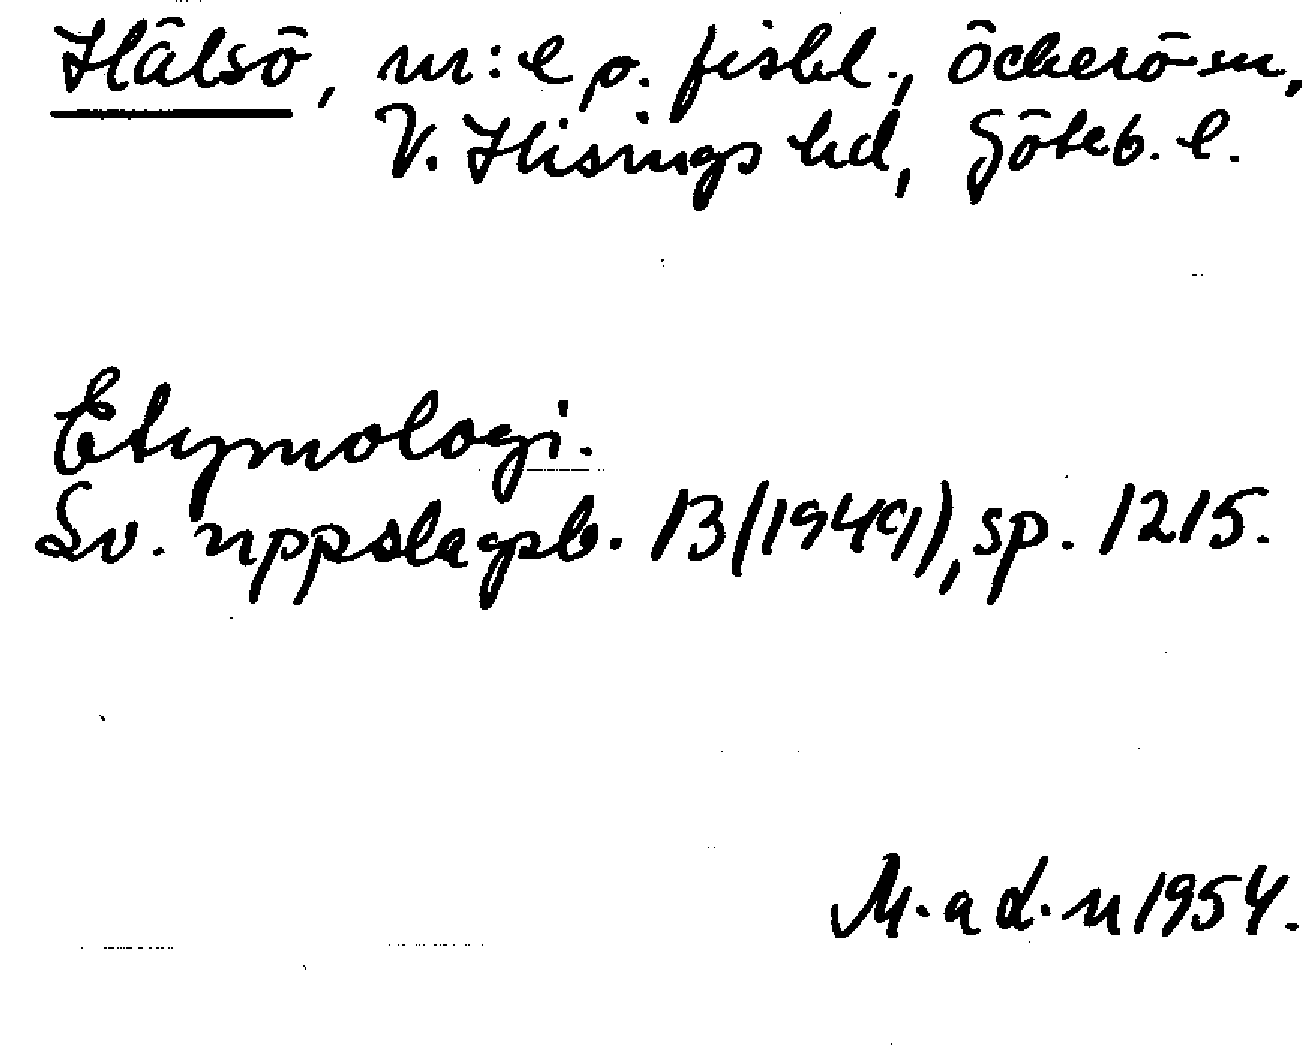 Hälsö, m:e o. fiskl., Öckerö sn,
V. Hisings hd, Göteb. l.
Etymologi.
Sv. uppslagsb. 13 (1949), sp. 1215.
M. a d. n 1954.